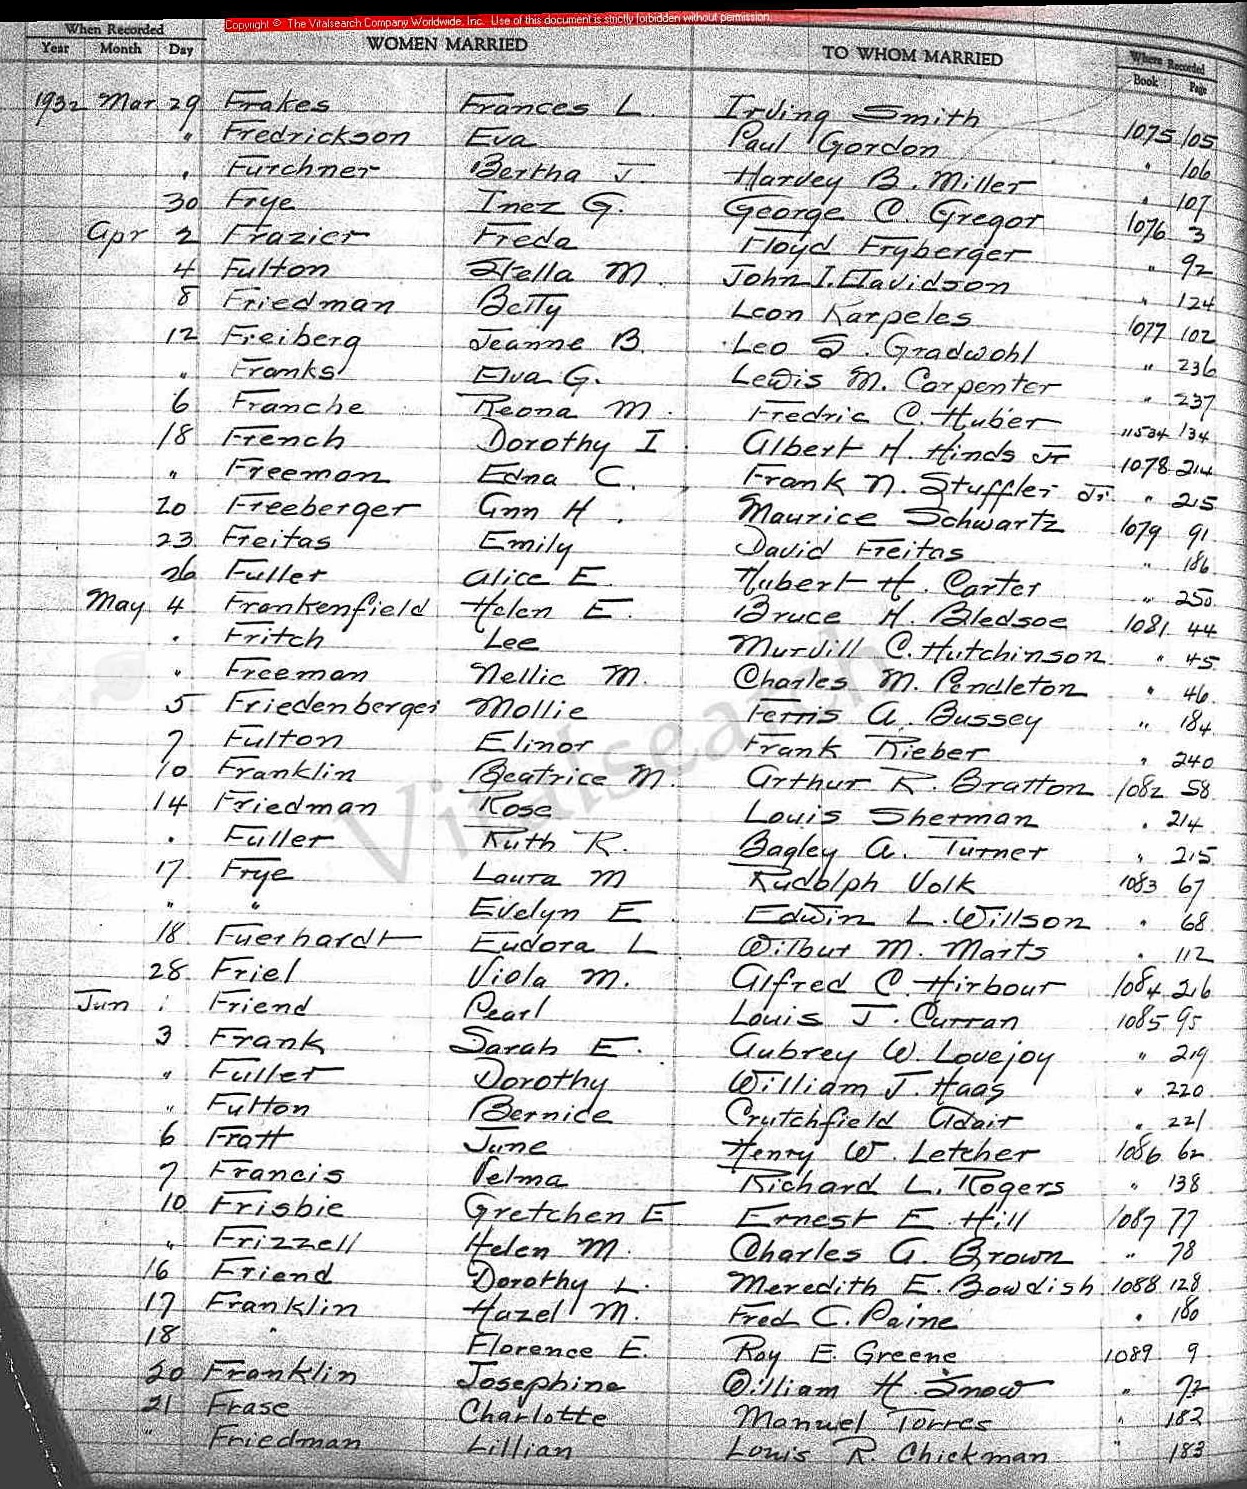 Copyright © The Vitalsearch Company Worldwide, Inc. Use of this document is strictly forbidden without permission.
When Recorded WOMEN MARRIED TO WHOM MARRIED Where Recorded
Year Month Day Book Page
1932 Mar 29 Frakes Frances L. Irving Smith 1075 105
" Fredrickson Eva Paul Gordon " 106
" Furchner Bertha J. Harvey B. Miller " 107
30 Frye Inez G. George C. Gregor 1076 3
Apr 2 Frazier Freda Floyd Fryberger " 92
4 Fulton Stella M. John I. Davidson " 124
8 Friedman Betty Leon Karpeles 1077 102
12 Freiberg Jeanne B. Leo S. Gradwohl " 236
" Franks Elva G. Lewis M. Carpenter " 237
6 Franche Reona M. Fredric C. Huber 11534 134
18 French Dorothy I Albert H. Hinds Jr 1078 214
" Freeman Edna C. Frank N. Stuffler Jr. " 215
20 Freeberger Ann H. Maurice Schwartz 1079 91
23 Freitas Emily David Freitas " 186
26 Fuller Alice E. Hubert H. Carter " 250
May 4 Frankenfield Helen E. Bruce H. Bledsoe 1081 44
" Fritch Lee Murvill C. Hutchinson " 45
" Freeman Nellie M. Charles M. Pendleton " 46
5 Friedenberger Mollie Ferris A. Bussey " 184
7 Fulton Elinor Frank Rieber " 240
10 Franklin Beatrice M. Arthur R. Bratton 1082 58
14 Friedman Rose Louis Sherman " 214
" Fuller Ruth R. Bagley A. Turner " 215
17 Frye Laura M Rudolph Volk 1083 67
" " Evelyn E Edwin L. Willson " 68
18 Fuerhardt Eudora L Wilbur M. Marts " 112
28 Friel Viola M. Alfred C. Hirbour 1084 216
Jun 1 Friend Pearl Louis J. Curran 1085 95
3 Frank Sarah E. Aubrey W. Lovejoy " 219
" Fuller Dorothy William J. Haas " 220
" Fulton Bernice Crutchfield Adair " 221
6 Fratt June Henry W. Letcher 1086 62
7 Francis Velma Richard L. Rogers " 138
10 Frisbie Gretchen E Ernest E. Hill 1087 77
" Frizzell Helen M. Charles G. Brown " 78
16 Friend Dorothy L. Meredith E. Bowdish 1088 128
17 Franklin Hazel M. Fred C. Paine " 180
18 " Florence E. Roy E. Greene 1089 9
20 Franklin Josephine William H. Snow " 72
21 Frase Charlotte Manuel Torres " 182
" Friedman Lillian Louis R. Chickman " 183
Vitalsearch